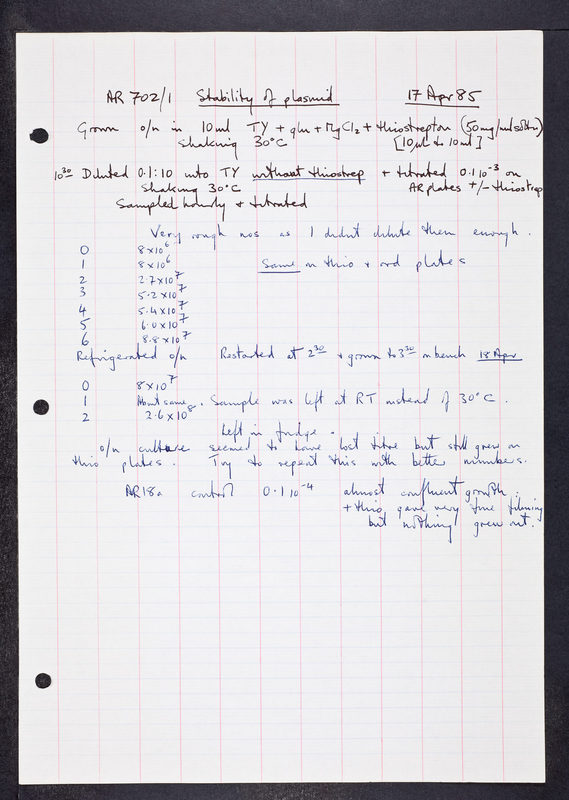 AR 702/1 Stability of plasmid 17 Apr 85
Grown o/n in 10ml TY + gln + MgCl2 + thiostrepton (50mg/ml soltn)
shaking 30°C [10µl to 10ml]
10³⁰ Diluted 0.1:10 into TY without thiostrep + titrated 0.1 10⁻³ on
shaking 30°C AR plates +/- thiostrep
Sampled hourly + titrated
Very rough nos as I didn't dilute them enough.
0 8×10⁶
1 8×10⁶ Same on thio + ord plates
2 2.7×10⁷
3 5.2×10⁷
4 5.4×10⁷
5 6.0×10⁷
6 8.8×10⁷
Refrigerated o/n Restarted at 2³⁰ + grown to 3³⁰ on bench 18 Apr
0 8×10⁷
1 About same. Sample was left at RT instead of 30°C.
2 2.6×10⁸
Left in fridge.
o/n culture seemed to have lost titre but still grew on
thio plates. Try to repeat this with better numbers.
AR18a control 0.1 10⁻⁴ almost confluent growth.
+ thio gave very fine
but nothing grew out.